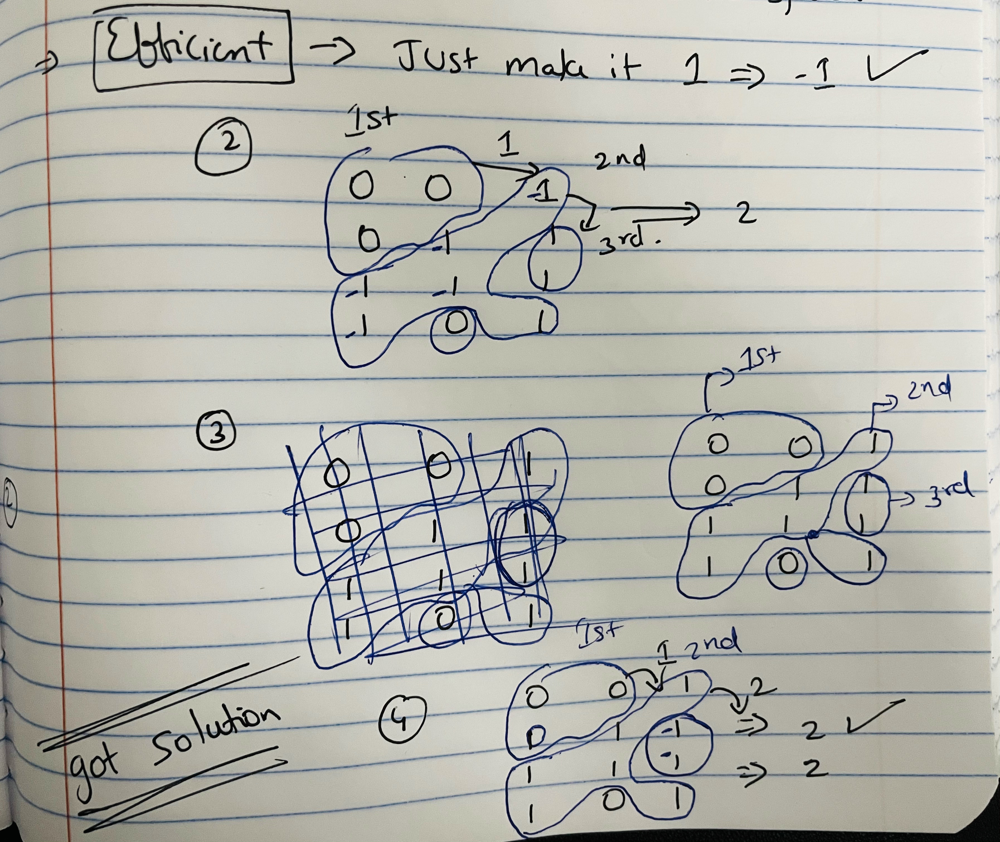 ⇒ Efficient → Just make it 1 ⇒ -1 ✓
② 1st
1 2nd
0 0 -1
⇒ 2
3rd.
0 -1 1
-1 -1 1
-1 0 1
③
0 0 1
0 1 1
1 1 1
1 0 1
1st
2nd
0 0 1
0 1 1
3rd
1 1 1
1 0 1
got solution
④
1st 1 2nd
0 0 1 2
0 1 -1 ⇒ 2 ✓
1 1 -1 ⇒ 2
1 0 1